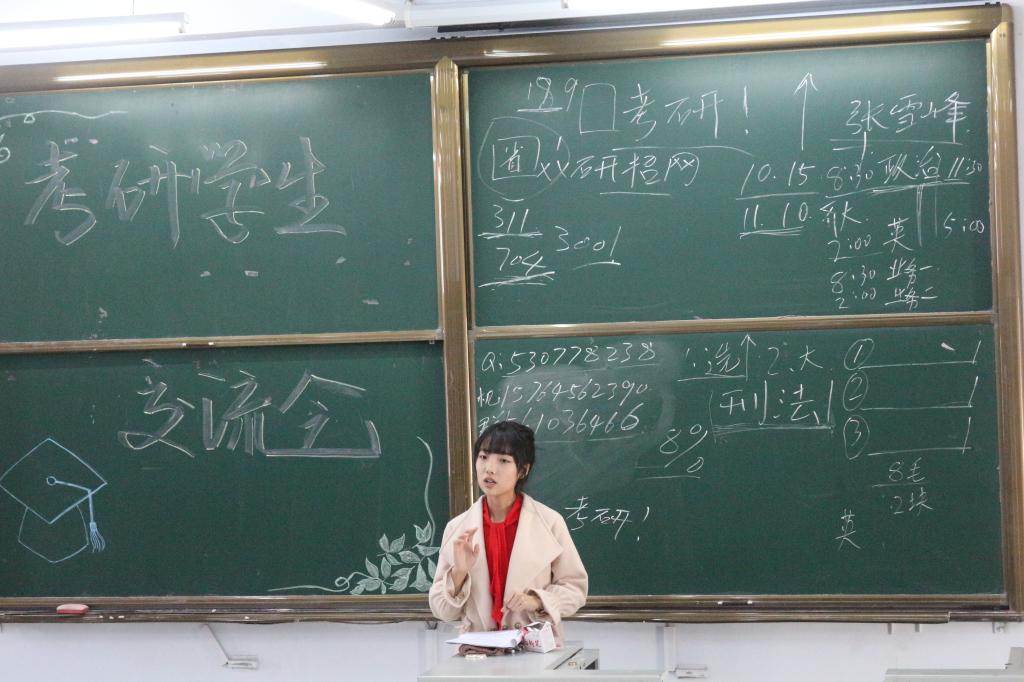 考研学生
交流会
189 考研！
省 xx研招网
311
704 3001
张雪峰
10.15 8:30 政治 11:30
11.10
2:00 英 5:00
8:30 业务一
2:00 业务二
Q:530778238
机15764562390
61036466
1.选 2.大
刑法
80
考研！
①
②
③
8毛
2块
英